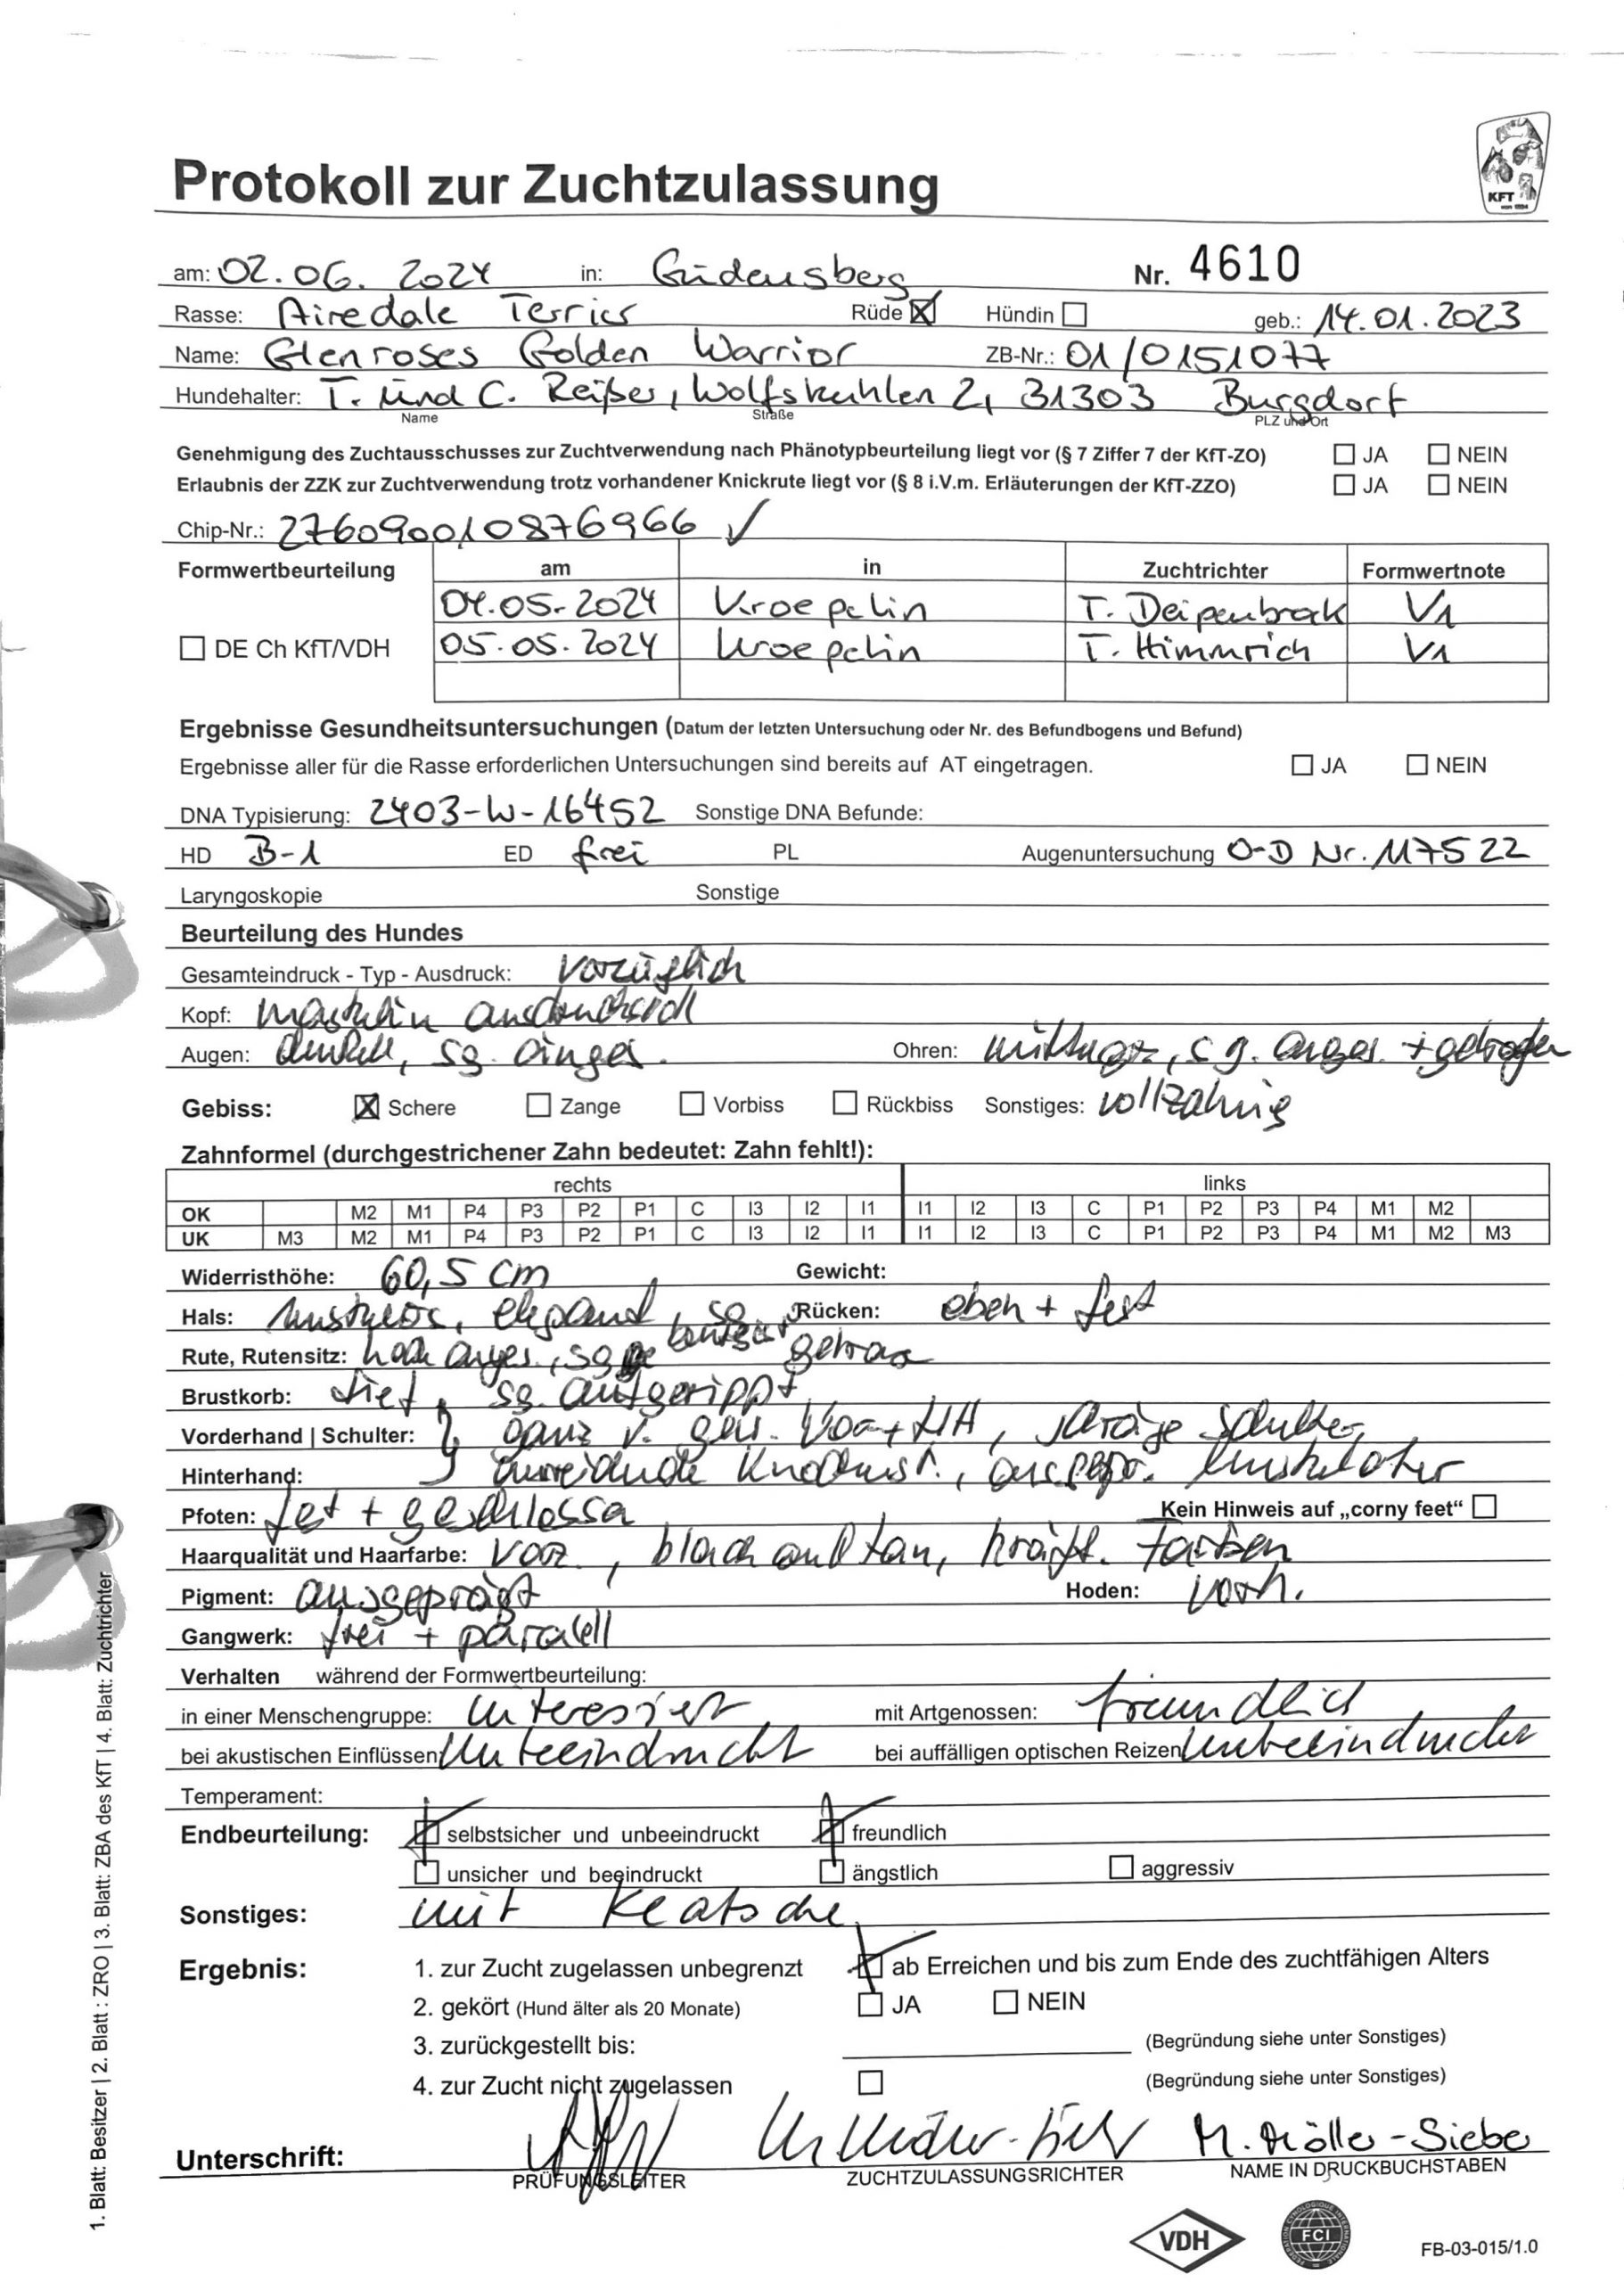 Protokoll zur Zuchtzulassung
KFT
am: 02.06.2024 in: Gudensberg Nr. 4610
Rasse: Airedale Terrier Rüde ☒ Hündin ☐ geb.: 14.01.2023
Name: Glenroses Golden Warrior ZB-Nr.: 01/0151077
Hundehalter: T. und C. Reißer, Wolfskuhlen 2, 31303 Burgdorf
Name Straße PLZ und Ort
Genehmigung des Zuchtausschusses zur Zuchtverwendung nach Phänotypbeurteilung liegt vor (§ 7 Ziffer 7 der KfT-ZO) ☐ JA ☐ NEIN
Erlaubnis der ZZK zur Zuchtverwendung trotz vorhandener Knickrute liegt vor (§ 8 i.V.m. Erläuterungen der KfT-ZZO) ☐ JA ☐ NEIN
Chip-Nr.: 276090010876966 ✓
Formwertbeurteilung am in Zuchtrichter Formwertnote
04.05.2024 Kroepelin T. Deipenbrock V1
☐ DE Ch KfT/VDH 05.05.2024 Kroepelin T. Himmrich V1
Ergebnisse Gesundheitsuntersuchungen (Datum der letzten Untersuchung oder Nr. des Befundbogens und Befund)
Ergebnisse aller für die Rasse erforderlichen Untersuchungen sind bereits auf AT eingetragen. ☐ JA ☐ NEIN
DNA Typisierung: 2403-W-16452 Sonstige DNA Befunde:
HD B-1 ED frei PL Augenuntersuchung O-D Nr. 117522
Laryngoskopie Sonstige
Beurteilung des Hundes
Gesamteindruck - Typ - Ausdruck: vorzüglich
Kopf: maskulin ausdrucksvoll
Augen: dunkel, sg. einges. Ohren: mittelgr., sg. anges. + getragen
Gebiss: ☒ Schere ☐ Zange ☐ Vorbiss ☐ Rückbiss Sonstiges: vollzahnig
Zahnformel (durchgestrichener Zahn bedeutet: Zahn fehlt!):
rechts links
OK M2 M1 P4 P3 P2 P1 C I3 I2 I1 I1 I2 I3 C P1 P2 P3 P4 M1 M2
UK M3 M2 M1 P4 P3 P2 P1 C I3 I2 I1 I1 I2 I3 C P1 P2 P3 P4 M1 M2 M3
Widerristhöhe: 60,5 cm Gewicht:
Hals: elegant, sg. Rücken: eben + fest
Rute, Rutensitz: hoch anges., sg
Brustkorb: tief, sg. aufgerippt
Vorderhand | Schulter: ganz v. gew. Vor + HH, schräge Schulter,
Hinterhand: ausreichende Knochenst., ausgepr. Muskulatur
Pfoten: fest + geschlossen Kein Hinweis auf „corny feet“ ☐
Haarqualität und Haarfarbe: vorz., black and tan, kräft. Farben
Pigment: ausgeprägt Hoden: vorh.
Gangwerk: frei + paralell
Verhalten während der Formwertbeurteilung:
in einer Menschengruppe: interessiert mit Artgenossen: freundlich
bei akustischen Einflüssen unbeeindruckt bei auffälligen optischen Reizen unbeeindruckt
Temperament:
Endbeurteilung: ☒ selbstsicher und unbeeindruckt ☒ freundlich
☐ unsicher und beeindruckt ☐ ängstlich ☐ aggressiv
Sonstiges: mit Klatsche
Ergebnis: 1. zur Zucht zugelassen unbegrenzt ☒ ab Erreichen und bis zum Ende des zuchtfähigen Alters
2. gekört (Hund älter als 20 Monate) ☐ JA ☐ NEIN
3. zurückgestellt bis: (Begründung siehe unter Sonstiges)
4. zur Zucht nicht zugelassen ☐ (Begründung siehe unter Sonstiges)
Unterschrift: M. Möller-Sieber
PRÜFUNGSLEITER ZUCHTZULASSUNGSRICHTER NAME IN DRUCKBUCHSTABEN
VDH FCI FB-03-015/1.0
1. Blatt: Besitzer | 2. Blatt : ZRO | 3. Blatt: ZBA des KfT | 4. Blatt: Zuchtrichter